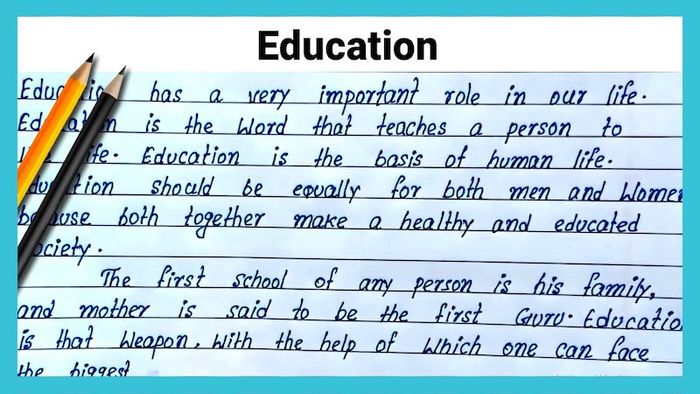 Education
Education has a very important role in our life.
Education is the word that teaches a person to
life. Education is the basis of human life.
Education should be equally for both men and women
because both together make a healthy and educated
society.
The first school of any person is his family,
and mother is said to be the first Guru. Education
is that weapon, with the help of which one can face
the biggest